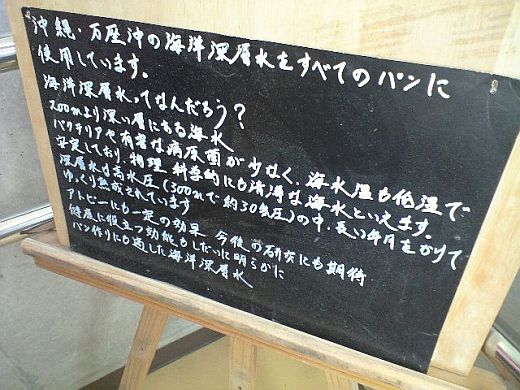 沖縄・万座沖の海洋深層水をすべてのパンに
使用しています。
海洋深層水ってなんだろう？
200mより深い層にある海水
バクテリアや有害な病原菌が少なく、海水温も低温で
安定しており、物理・科学的にも清浄な海水といえます。
深層水は高水圧(300mで約30気圧)の中、長い年月をかけて
ゆっくり熟成されています
アトピーにも一定の効果 今後の研究にも期待
健康に役立つ効能もしだいに明らかに
パン作りにも適した海洋深層水